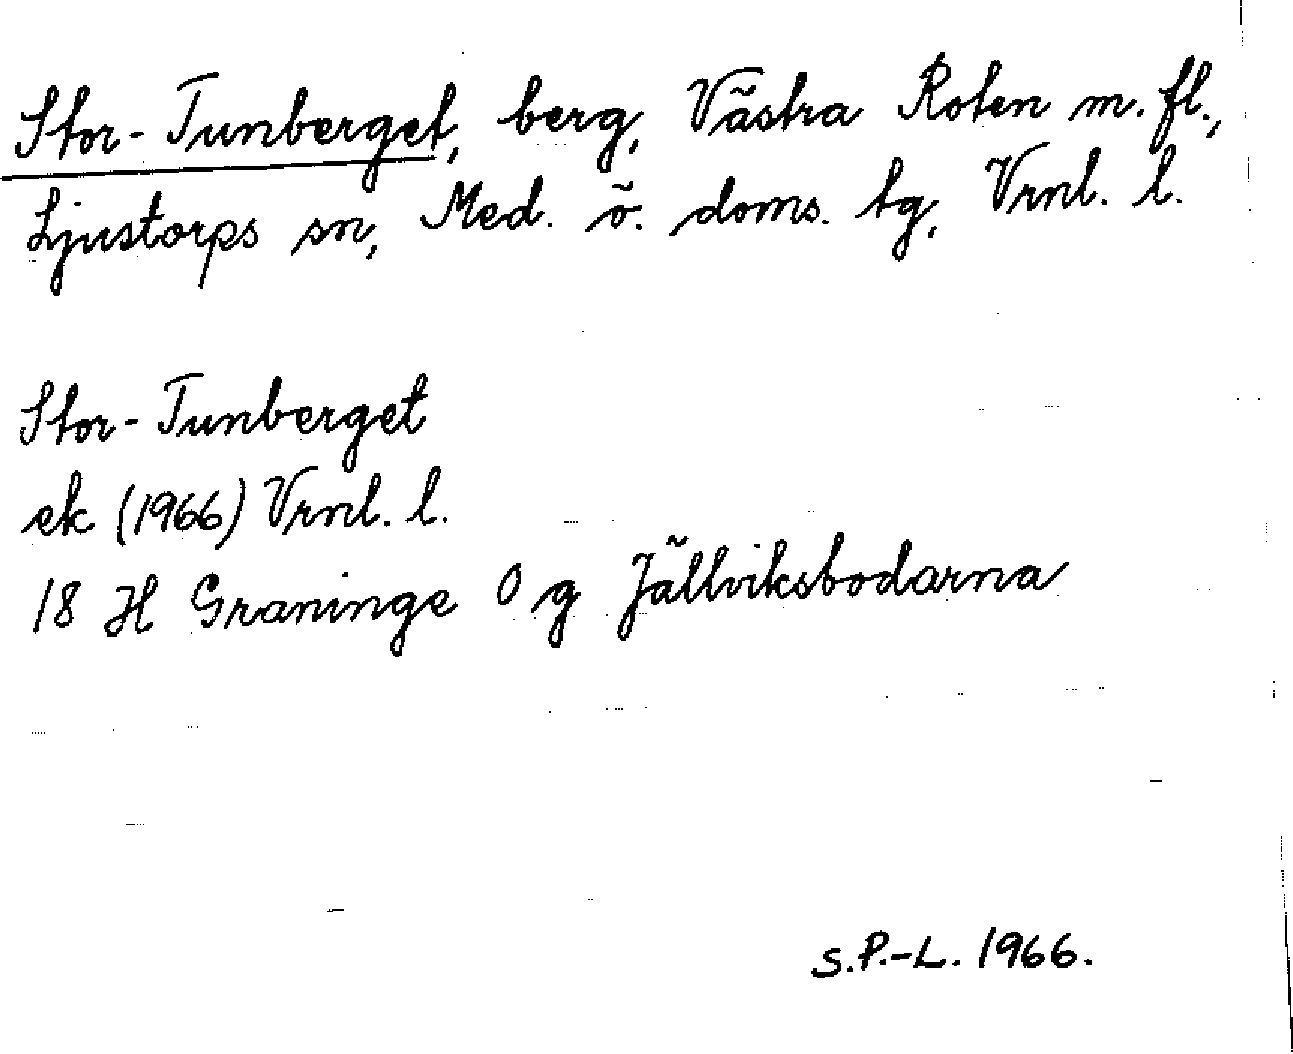 Stor-Tunberget, berg, Västra Roten m.fl.,
Ljustorps sn, Med. ö. doms. tg, Vrnl. l.
Stor-Tunberget
ek (1966) Vrnl. l.
18 H Graninge 0 g Jällviksbodarna
S.P.-L. 1966.